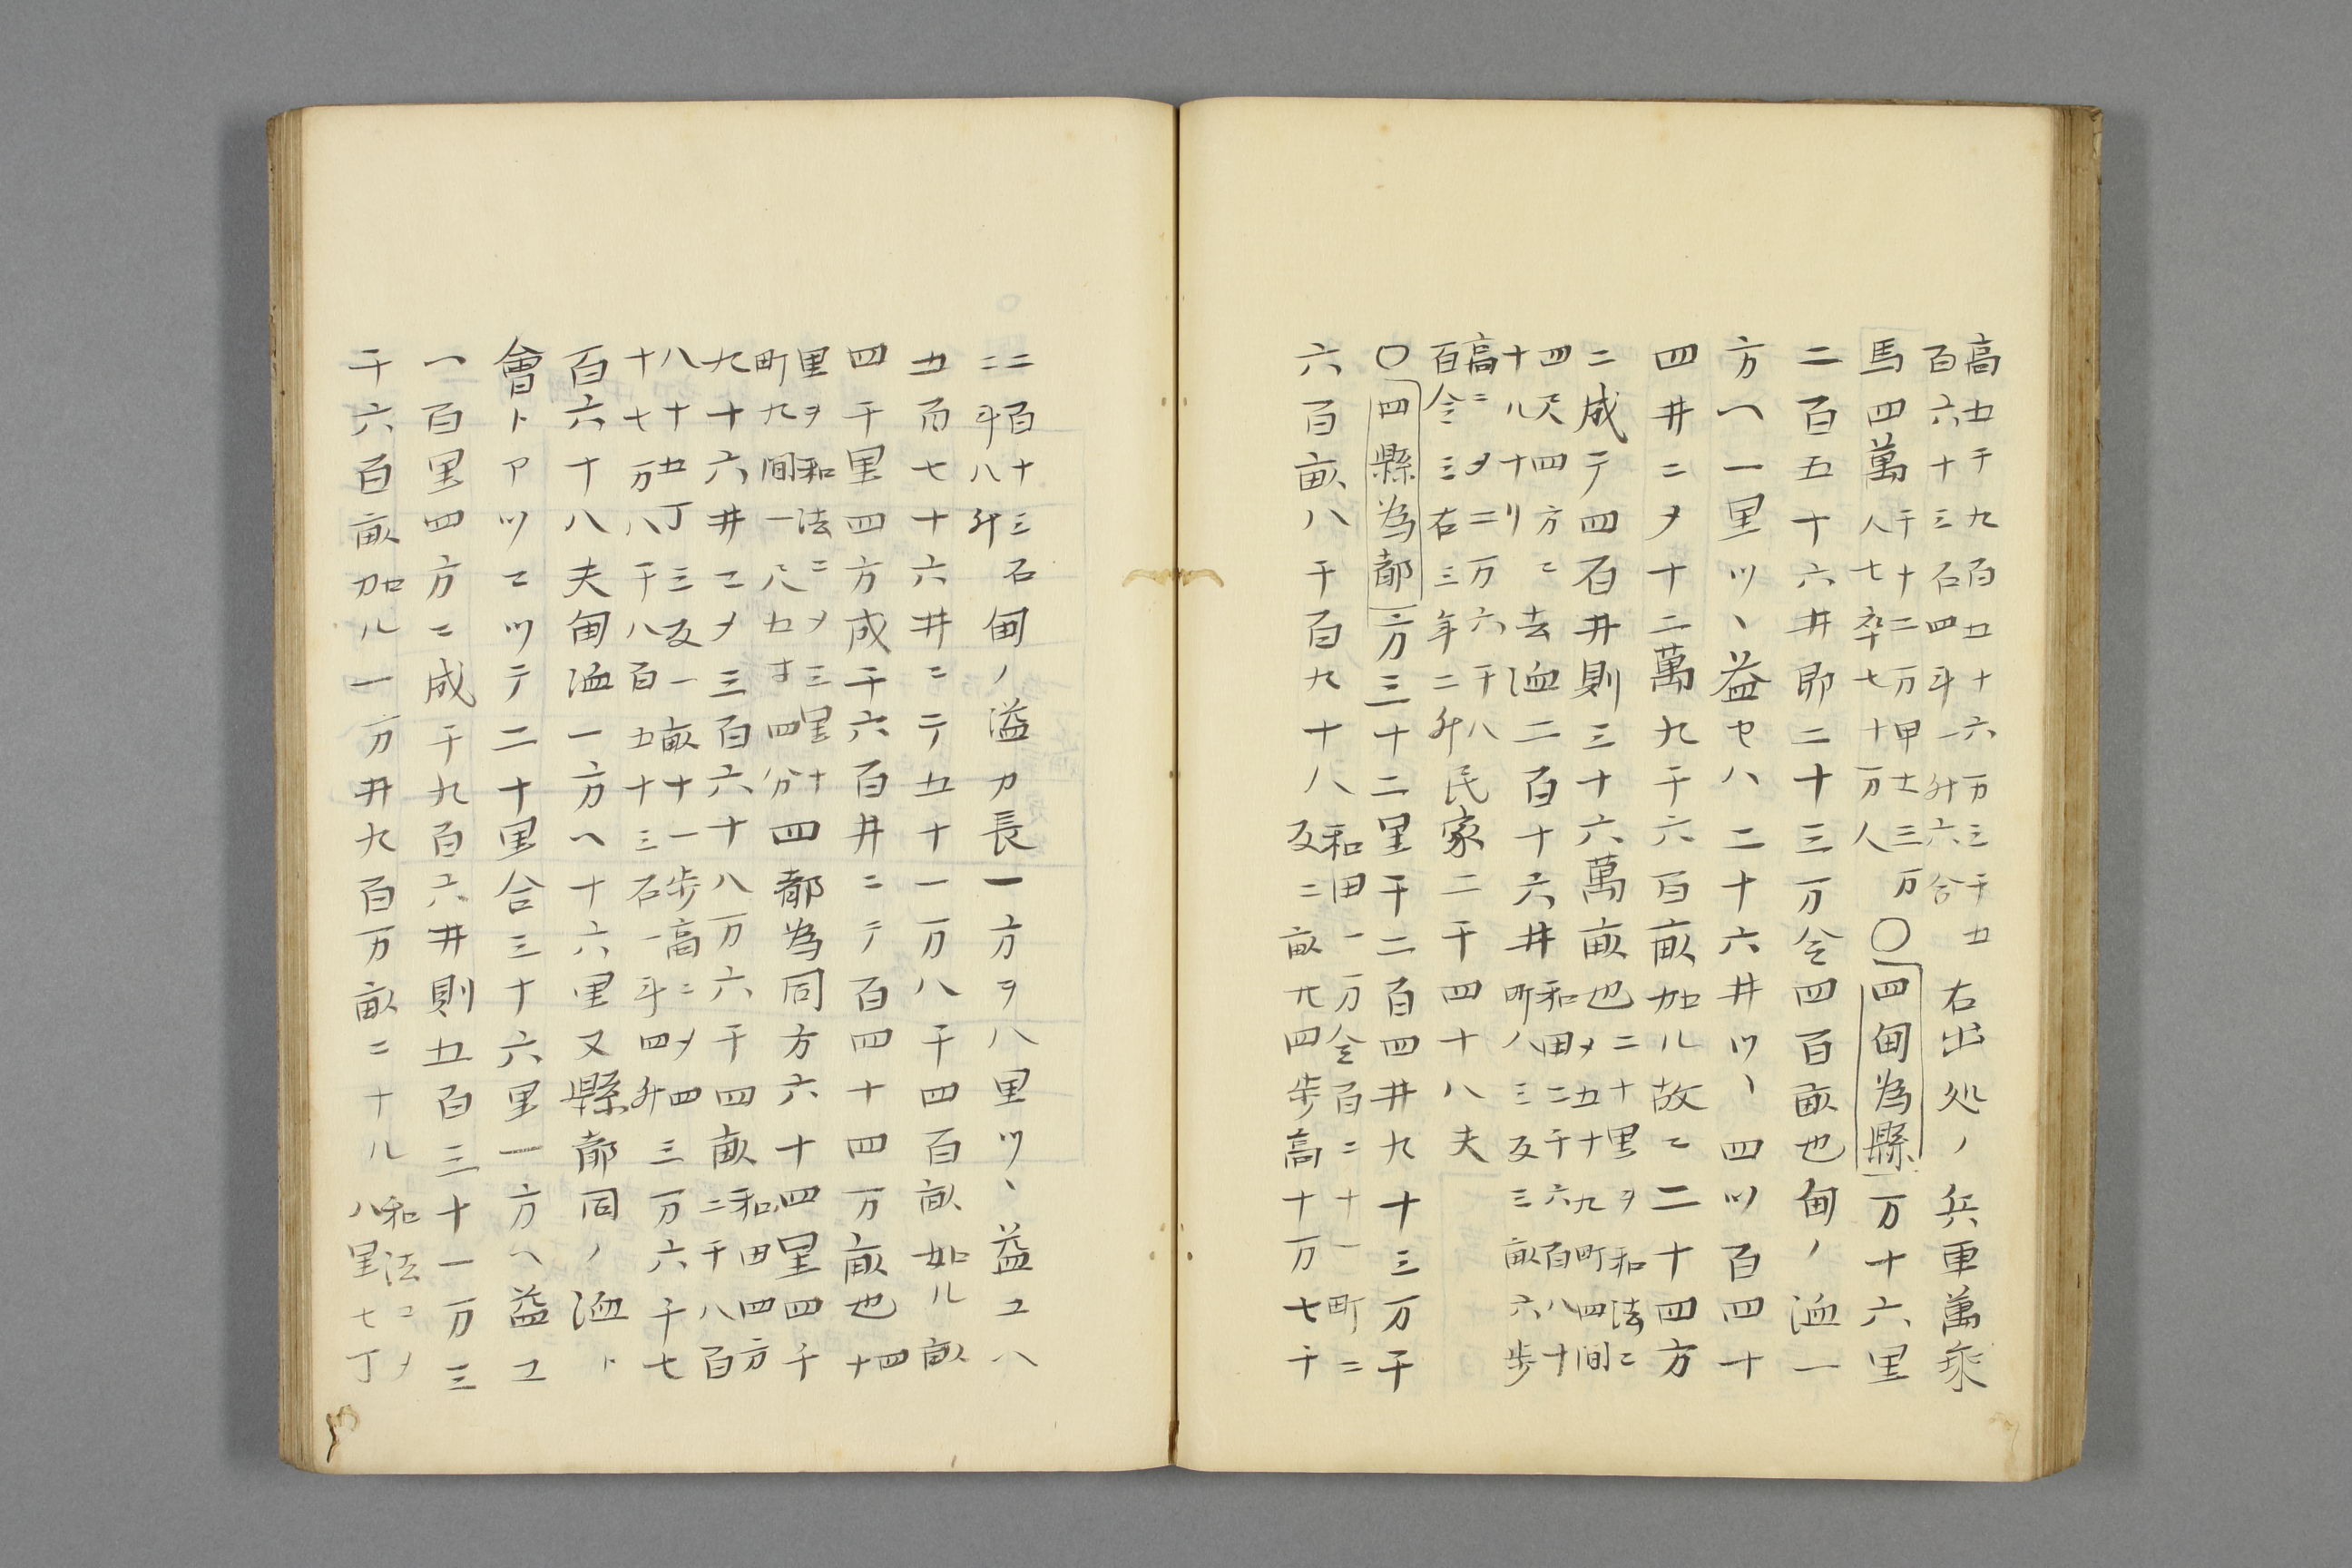 高五千九百五十六万三千五
百六十三石四斗一升六合
右出処ノ兵車萬乗
馬四萬
千十二万甲士三万
人七卒七十万人
〇四甸為縣一万十六里
二百五十六井即二十三万令四百畝也甸ノ洫一
方ヘ一里ツヽ益セハ二十六井ツヽ四ツ百四十
四井ニ〆十二萬九千六百畝加ル故ニ二十四方
ニ成テ四百井則三十六萬畝也
二十里ヲ和法ニ
〆五十九町四十間
四尺四方ニ去洫二百十六井
和田二千六百八十
町八三反三畝六歩
高ニ〆二万六千八
百令三石三年二升
民家二千四十八夫
〇四縣為都一方三十二里千二百四井九十三万千
六百畝八千百九十八
和田一万令百二十一町二
反二畝九四歩高十万七千
二百十三石
二斗八升
甸ノ溢カ長一方ヲ八里ツヽ益ユハ
五百七十六井ニテ五十一万八千四百畝如ル畝
四千里四方成千六百井ニテ百四十四万畝也
四十
里ヲ和法ニ〆三里十
町九間一尺五寸四分
四都為同方六十四里四千
九十六井ニ〆三百六十八万六千四畝
和田四方
二千八百
八十五丁三反一畝十一歩高ニ〆四
十七万八千八百五十三石一斗四升
三万六千七
百六十八夫甸洫一方ヘ十六里又縣都同ノ洫ト
會トアツニツテ二十里合三十六里一方ヘ益ユ
一百里四方ニ成千九百六井則五百三十一万三
千六百畝加ル一万井九百万畝ニナル
和法ニ〆
八里七丁